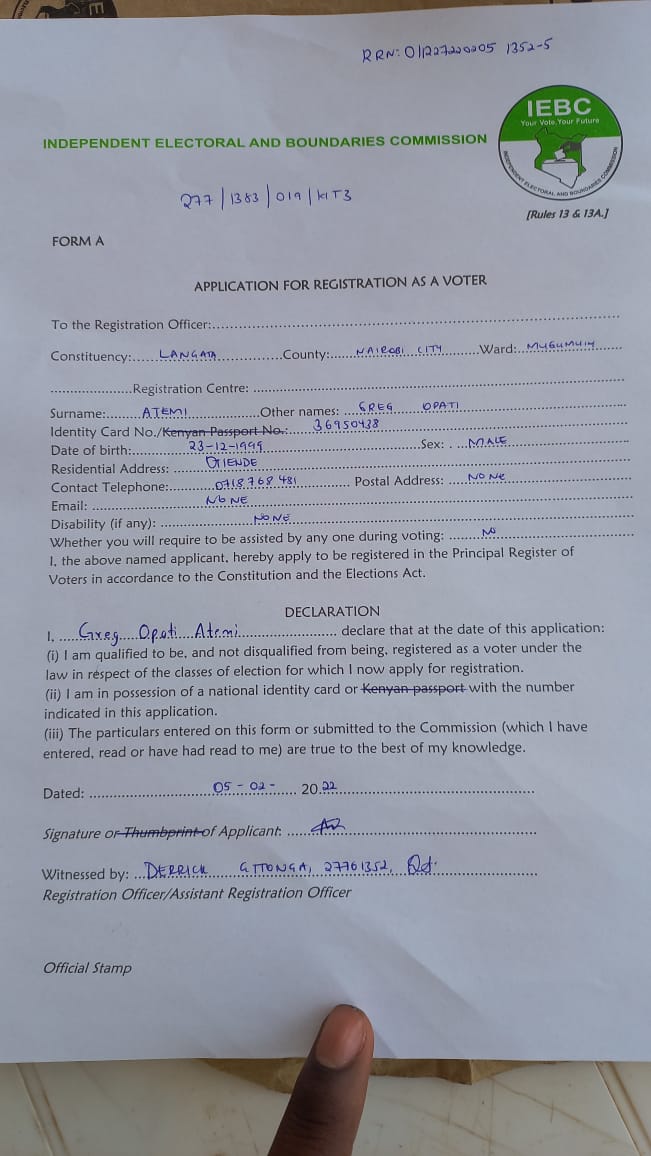 RRN: 01R27220205 1352-5
IEBC
Your Vote, Your Future
INDEPENDENT ELECTORAL AND BOUNDARIES COMMISSION
INDEPENDENT ELECTORAL AND BOUNDARIES COMMISSION
277/1383/019/KIT3
[Rules 13 & 13A.]
FORM A
APPLICATION FOR REGISTRATION AS A VOTER
To the Registration Officer:
Constituency: LANGATA County: NAIROBI CITY Ward: MUGUMUIN
Registration Centre:
Surname: ATEMI Other names: GREG OPATI
Identity Card No./Kenyan Passport No.: 36950438
Date of birth: 23-12-1999 Sex: MALE
Residential Address: OTIENDE
Contact Telephone: 0718768481 Postal Address: NONE
Email: NONE
Disability (if any): NONE
Whether you will require to be assisted by any one during voting: NO
I, the above named applicant, hereby apply to be registered in the Principal Register of
Voters in accordance to the Constitution and the Elections Act.
DECLARATION
I, Greg Opati Atemi declare that at the date of this application:
(i) I am qualified to be, and not disqualified from being, registered as a voter under the
law in respect of the classes of election for which I now apply for registration.
(ii) I am in possession of a national identity card or Kenyan passport with the number
indicated in this application.
(iii) The particulars entered on this form or submitted to the Commission (which I have
entered, read or have had read to me) are true to the best of my knowledge.
Dated: 05-02- 2022
Signature or Thumbprint of Applicant:
Witnessed by: DERRICK GITONGA, 27761352,
Registration Officer/Assistant Registration Officer
Official Stamp